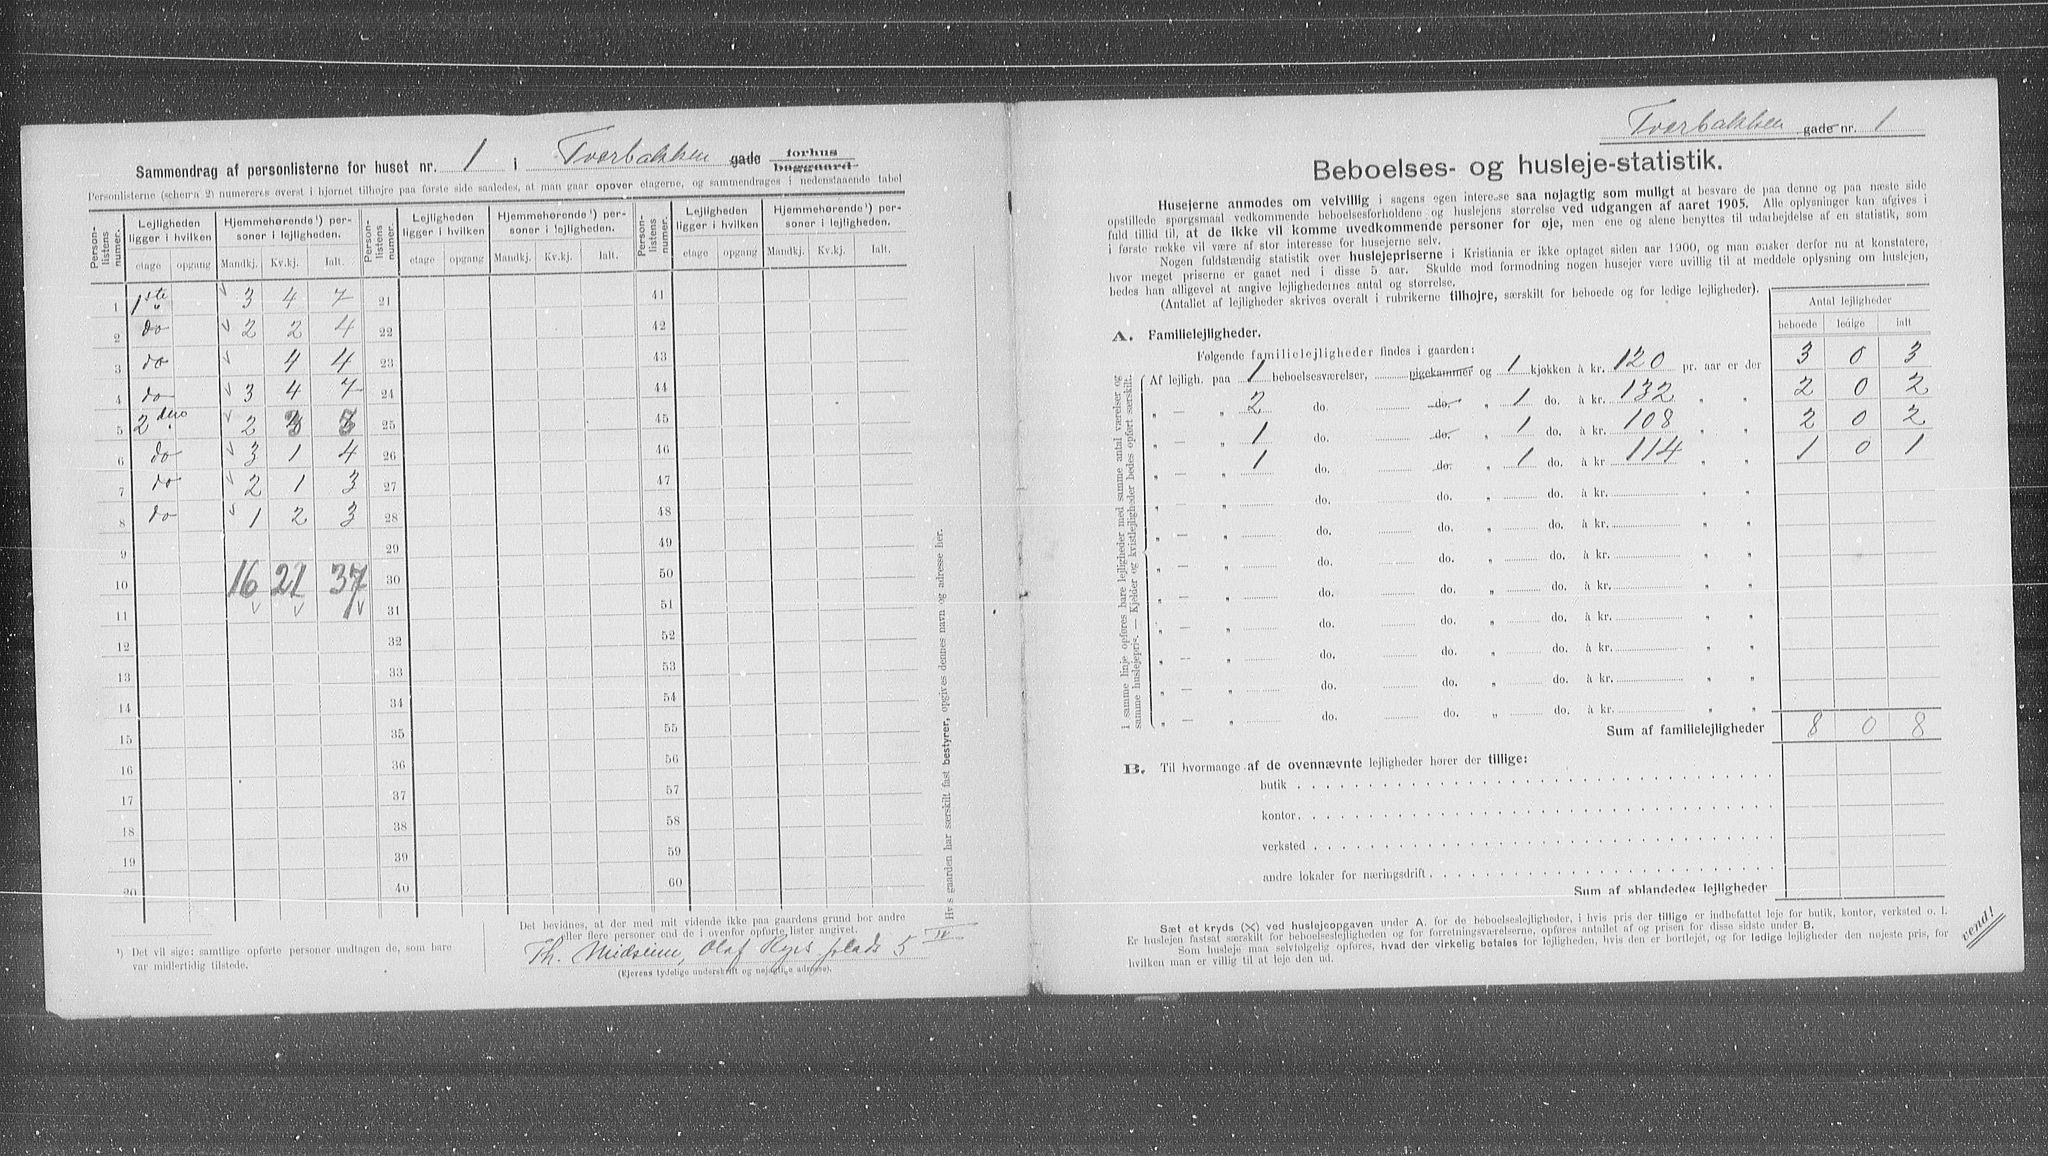 Sammendrag af personlisterne for huset nr. 1 i Tværbakken gade forhus baggaard
Personlisterne (schema 2) numereres øverst i hjørnet tilhøjre paa første side saaledes, at man gaar opover etagerne, og sammendrages i nedenstaaende tabel
Person-listens numer. Lejligheden ligger i hvilken Hjemmehørende¹) personer i lejligheden. Person-listens numer. Lejligheden ligger i hvilken Hjemmehørende¹) personer i lejligheden. Person-listens numer. Lejligheden ligger i hvilken Hjemmehørende¹) personer i lejligheden.
etage opgang Mandkj. Kv.kj. Ialt. etage opgang Mandkj. Kv.kj. Ialt. etage opgang Mandkj. Kv.kj. Ialt.
1 1ste 3 4 7 21 41
2 do 2 2 4 22 42
3 do 4 4 23 43
4 do 3 4 7 24 44
5 2den 2 3 5 25 45
6 do 3 1 4 26 46
7 do 2 1 3 27 47
8 do 1 2 3 28 48
9 29 49
10 16 21 37 30 50
11 31 51
12 32 52
13 33 53
14 34 54
15 35 55
16 36 56
17 37 57
18 38 58
19 39 59
20 40 60
¹) Det vil sige: samtlige opførte personer undtagen de, som bare
var midlertidig tilstede.
Det bevidnes, at der med mit vidende ikke paa gaardens grund bor andre
eller flere personer end de i ovenfor opførte lister angivet.
Th. Midseim, Olaf Ryes plads 5 IV
(Ejerens tydelige underskrift og nøjagtige adresse).
Hvis gaarden har særskilt fast bestyrer, opgives dennes navn og adresse her.
Tværbakken gade nr. 1
Beboelses- og husleje-statistik.
Husejerne anmodes om velvillig i sagens egen interesse saa nøjagtig som muligt at besvare de paa denne og paa næste side
opstillede spørgsmaal vedkommende beboelsesforholdene og huslejens størrelse ved udgangen af aaret 1905. Alle oplysninger kan afgives i
fuld tillid til, at de ikke vil komme uvedkommende personer for øje, men ene og alene benyttes til udarbejdelse af en statistik, som
i første række vil være af stor interesse for husejerne selv.
Nogen fuldstændig statistik over huslejepriserne i Kristiania er ikke optaget siden aar 1900, og man ønsker derfor nu at konstatere,
hvor meget priserne er gaaet ned i disse 5 aar. Skulde mod formodning nogen husejer være uvillig til at meddele oplysning om huslejen,
bedes han alligevel at angive lejlighedernes antal og størrelse.
(Antallet af lejligheder skrives overalt i rubrikerne tilhøjre, særskilt for beboede og for ledige lejligheder).
Antal lejligheder
beboede ledige ialt
A. Familielejligheder.
Følgende familielejligheder findes i gaarden:
Af lejligh. paa 1 beboelsesværelser, pigekammer og 1 kjøkken à kr. 120 pr. aar er der 3 0 3
„ — „ 2 do. do. „ 1 do. à kr. 132 „ „ 2 0 2
„ — „ 1 do. do. „ 1 do. à kr. 108 „ „ 2 0 2
„ — „ 1 do. do. „ 1 do. à kr 114 „ „ 1 0 1
„ — „ do. do. „ do. à kr. „ „
„ — „ do. do. „ do. à kr. „ „
„ — „ do. do. „ do. à kr. „ „
„ — „ do. do. „ do. à kr. „ „
„ — „ do. do. „ do. à kr. „ „
„ — „ do. do. „ do. à kr. „ „
„ — „ do. do. „ do. à kr. „ „
„ — „ do. do. „ do. à kr. „ „
I samme linje opføres bare lejligheder med samme antal værelser og
samme huslejepris. — Kjelder og kvistlejligheder bedes opført særskilt.
Sum af familielejligheder 8 0 8
B. Til hvormange af de ovennævnte lejligheder hører der tillige:
butik
kontor
verksted
andre lokaler for næringsdrift
Sum af »blandede« lejligheder
Sæt et kryds (X) ved huslejeopgaven under A. for de beboelseslejligheder, i hvis pris der tillige er indbefattet leje for butik, kontor, verksted o. l.
Er huslejen fastsat særskilt for beboelseslejligheden og for forretningsværelserne, opføres antallet af og prisen for disse sidste under B.
Som husleje maa selvfølgelig opføres, hvad der virkelig betales for lejligheden, hvis den er bortlejet, og for ledige lejligheder den nøjeste pris, for
hvilken man er villig til at leje den ud.
vend!